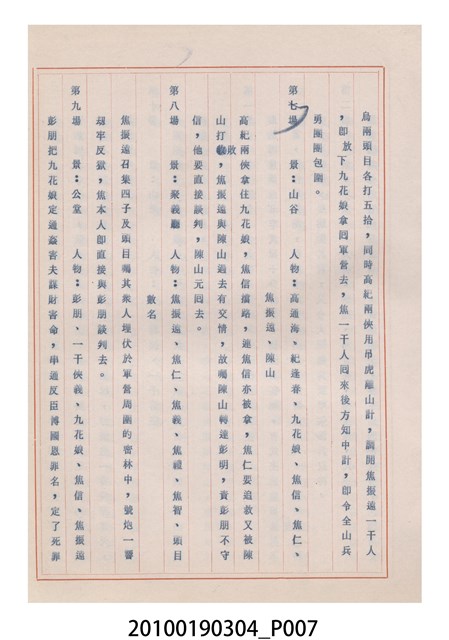 烏兩頭目各打五拾，同時高紀兩俠用吊虎離山計，調開焦振遠一千人
，卽放下九花娘拿囘軍營去，焦一千人囘來後方知中計，卽令全山兵
勇團團包圍。
第七場　景：山谷　人物：高通海、紀逢春、九花娘、焦信、焦仁、
焦振遠、陳山
高紀兩俠拿住九花娘，焦信擋路，連焦信亦被拿，焦仁要追救又被陳
山打敗，焦振遠與陳山過去有交情，故囑陳山轉達彭明，責彭朋不守
信，他要直接談判，陳山元囘去。
第八場　景：聚義廳　人物：焦振遠、焦仁、焦義、焦禮、焦智、頭目
數名
焦振遠召集四子及頭目囑其衆人埋伏於軍營周圍的密林中，號炮一響
刼牢反獄，焦本人卽直接與彭朋談判去。
第九場　景：公堂　人物：彭朋、一干俠義、九花娘、焦信、焦振遠
彭朋把九花娘定通姦害夫謀財害命，串通反臣傅國恩罪名，定了死罪
20100190304_P007